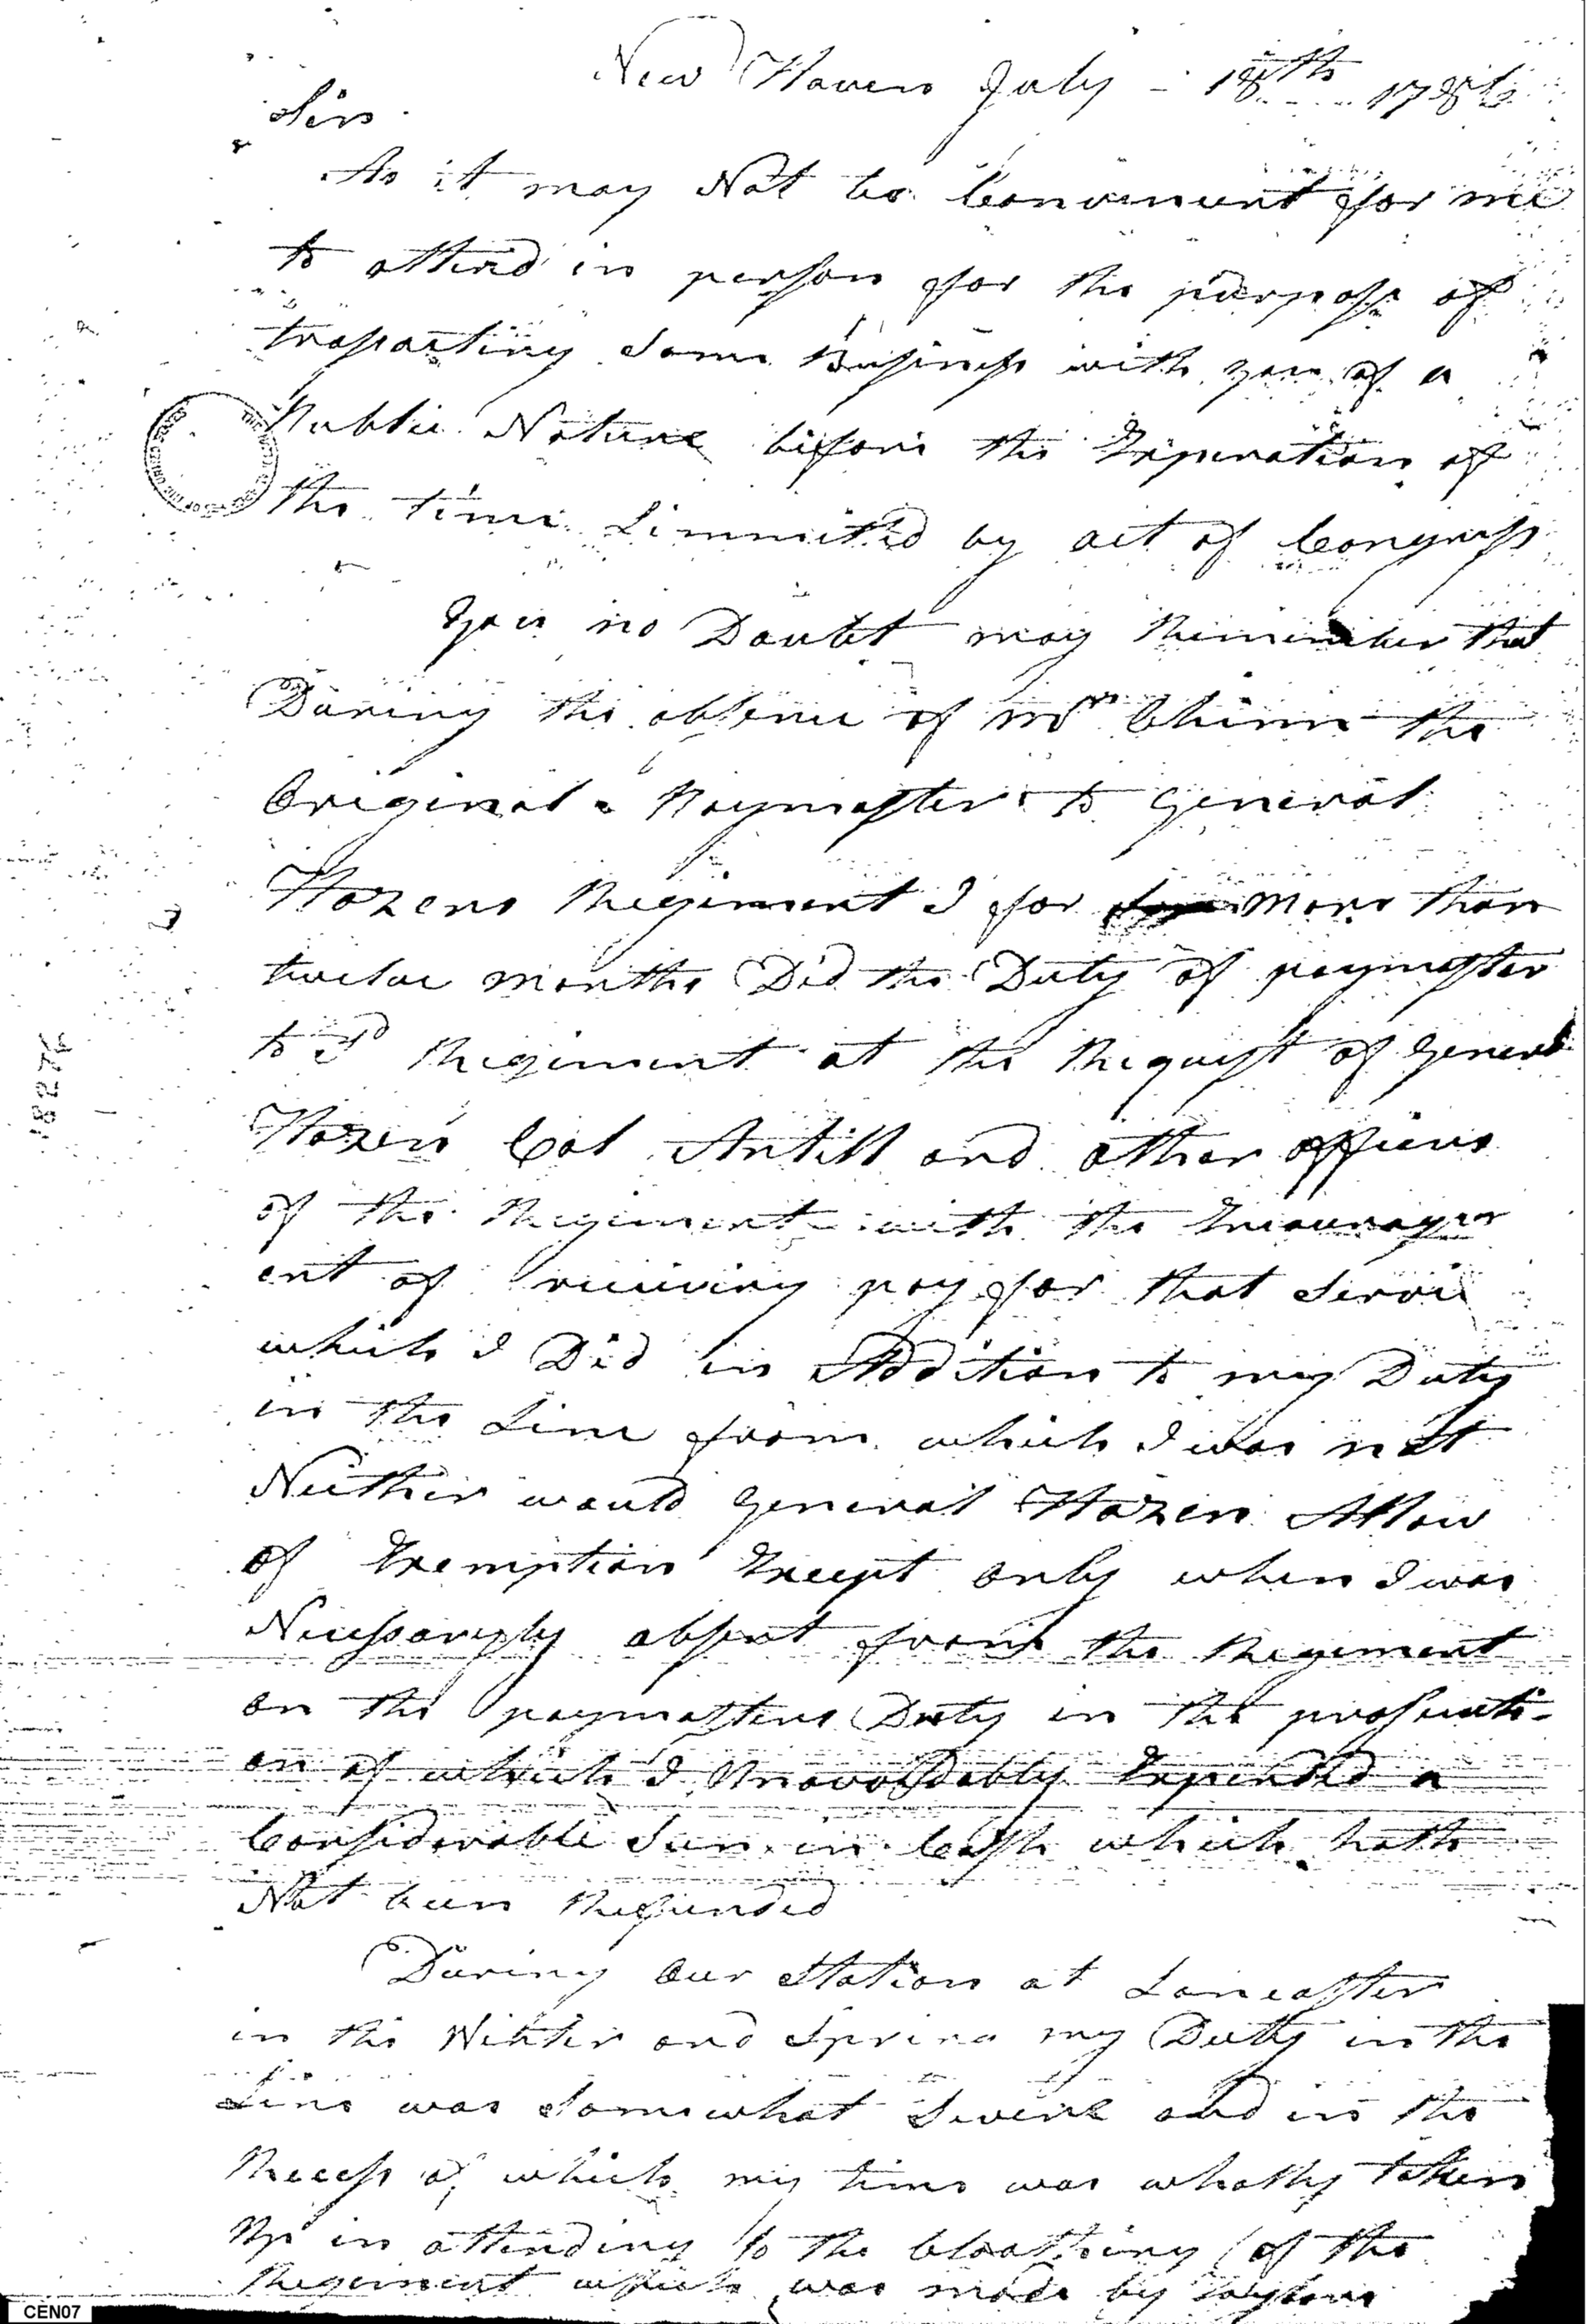 New Haven July - 18th 1786
Sir
As it may Not be Convenient for me
to attend in person for the purpose of
trasacting Some Business with you of a
Public Nature before the Experation of
the time Limmited by act of Congress
You no Doubt may Remember that
During the absence of Mr Chinn the
Original Paymaster to General
Hazens Regiment I for More than
twelve months Did the Duty of paymaster
to Sd Regiment at the Request of General
Hazen Col Antill and other officers
of the Regiment with the Encouragem
ent of receiving pay for that Servi
which I Did in Addition to my Duty
in the Line from which I was not
Neither would General Hazen Allow
of Exemption Except only when I was
Necessaryly absent from the Regiment
on the paymasters Duty in the prosecuti-
on of which I Unavoidably Expended a
Considerable Sum in Cash which hath
Not been Refunded
During our Station at Lancaster
in the Winter and Spring my Duty in the
Line was Somewhat Severe and in the
Recess of which my time was wholly taken
Up in attending to the Cloathing of the
Regiment which was made by Taylors
18276
CEN07